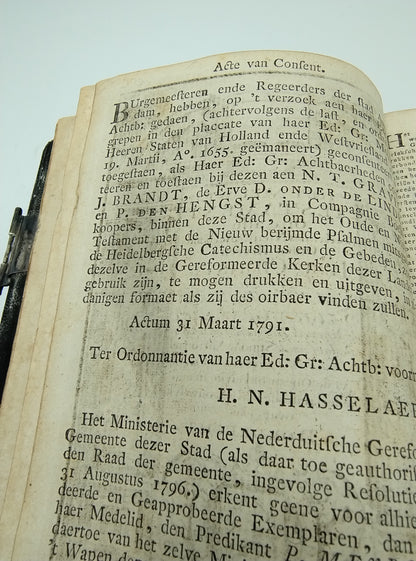 Acte van Consent.
BUrgemeesteren ende Regeerders der stad
dam, hebben, op 't verzoek aen haer
Achtb: gedaen, (achtervolgens de last, en ord
grepen in den placcate van haer Ed: Gr:
Heeren Staten van Holland ende Westvries
19. Martii, Aº. 1655. geëmaneert) geconsen
toegestaen, als Haer Ed: Gr: Achtbaerhede
teeren en toestaen bij dezen aen N. T. GRA
J. BRANDT, de Erve D. ONDER DE LIN
en P. DEN HENGST, in Compagnie
koopers, binnen deze Stad, om het Oude en
Testament met de Nieuw berijmde Psalmen mits
de Heidelbergsche Catechismus en de Gebeden
dezelve in de Gereformeerde Kerken dezer Lan
gebruik zijn, te mogen drukken en uitgeven,
danigen formaet als zij des oirbaer vinden zullen.
Actum 31 Maart 1791.
Ter Ordonnantie van haer Ed: Gr: Achtb: voor
H. N. HASSELAE
Het Ministerie van de Nederduitsche Geref
Gemeente dezer Stad (als daar toe geauthoris
den Raad der gemeente, ingevolge Resoluti
31 Augustus 1796.) erkent geene voor alhie
deerde en Geapprobeerde Exemplaren, dan
haer Medelid, den Predikant P.
daertoe van het zelve Mi
't Wapen der